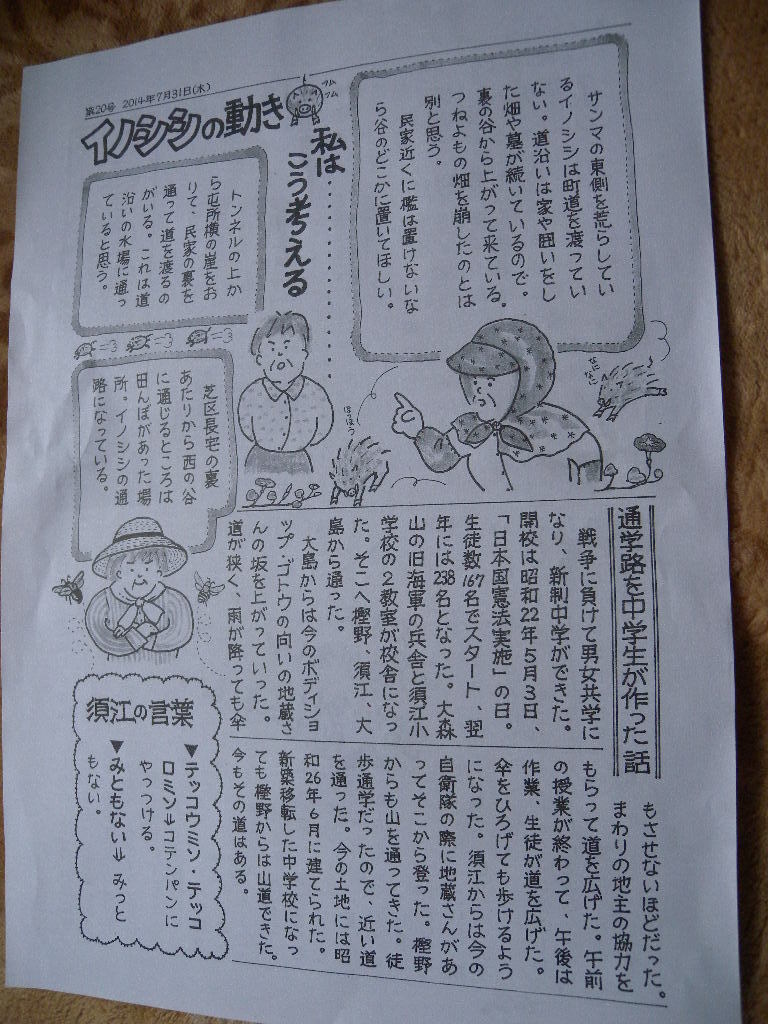 第20号 2014年7月31日(木)
イノシシの動き
フム
フム
私は
こう考える
………
サンマの東側を荒らしてい
るイノシシは町道を渡ってい
ない。道沿いは家や囲いをし
た畑や墓が続いているので。
裏の谷から上がって来ている。
つねよもの畑を崩したのとは
別と思う。
民家近くに檻は置けないな
ら谷のどこかに置いてほしい。
トンネルの上か
ら屯所横の崖をお
りて、民家の裏を
通って道を渡るの
がいる。これは道
沿いの水場に通っ
ていると思う。
芝区長宅の裏
あたりから西の谷
に通じるところは
田んぼがあった場
所。イノシシの通
路になっている。
なに
なに
通学路を中学生が作った話
戦争に負けて男女共学に
なり、新制中学ができた。
開校は昭和22年5月3日、
「日本国憲法実施」の日。
生徒数167名でスタート、翌
年には238名となった。大森
山の旧海軍の兵舎と須江小
学校の2教室が校舎になっ
た。そこへ樫野、須江、大
島から通った。
大島からは今のボディショ
ップ・ゴトウの向いの地蔵さ
んの坂を上がっていった。
道が狭く、雨が降っても傘
もさせないほどだった。
まわりの地主の協力を
もらって道を広げた。午前
の授業が終わって、午後は
作業、生徒が道を広げた。
傘をひろげても歩けるよう
になった。須江からは今の
自衛隊の際に地蔵さんがあ
ってそこから登った。樫野
からも山を通ってきた。徒
歩通学だったので、近い道
を通った。今の土地には昭
和26年6月に建てられた。
新築移転した中学校になっ
ても樫野からは山道できた。
今もその道はある。
須江の言葉
▼テッコウミソ・テッコ
ロミソ⇒コテンパンに
やっつける。
▼みともない⇒みっと
もない。